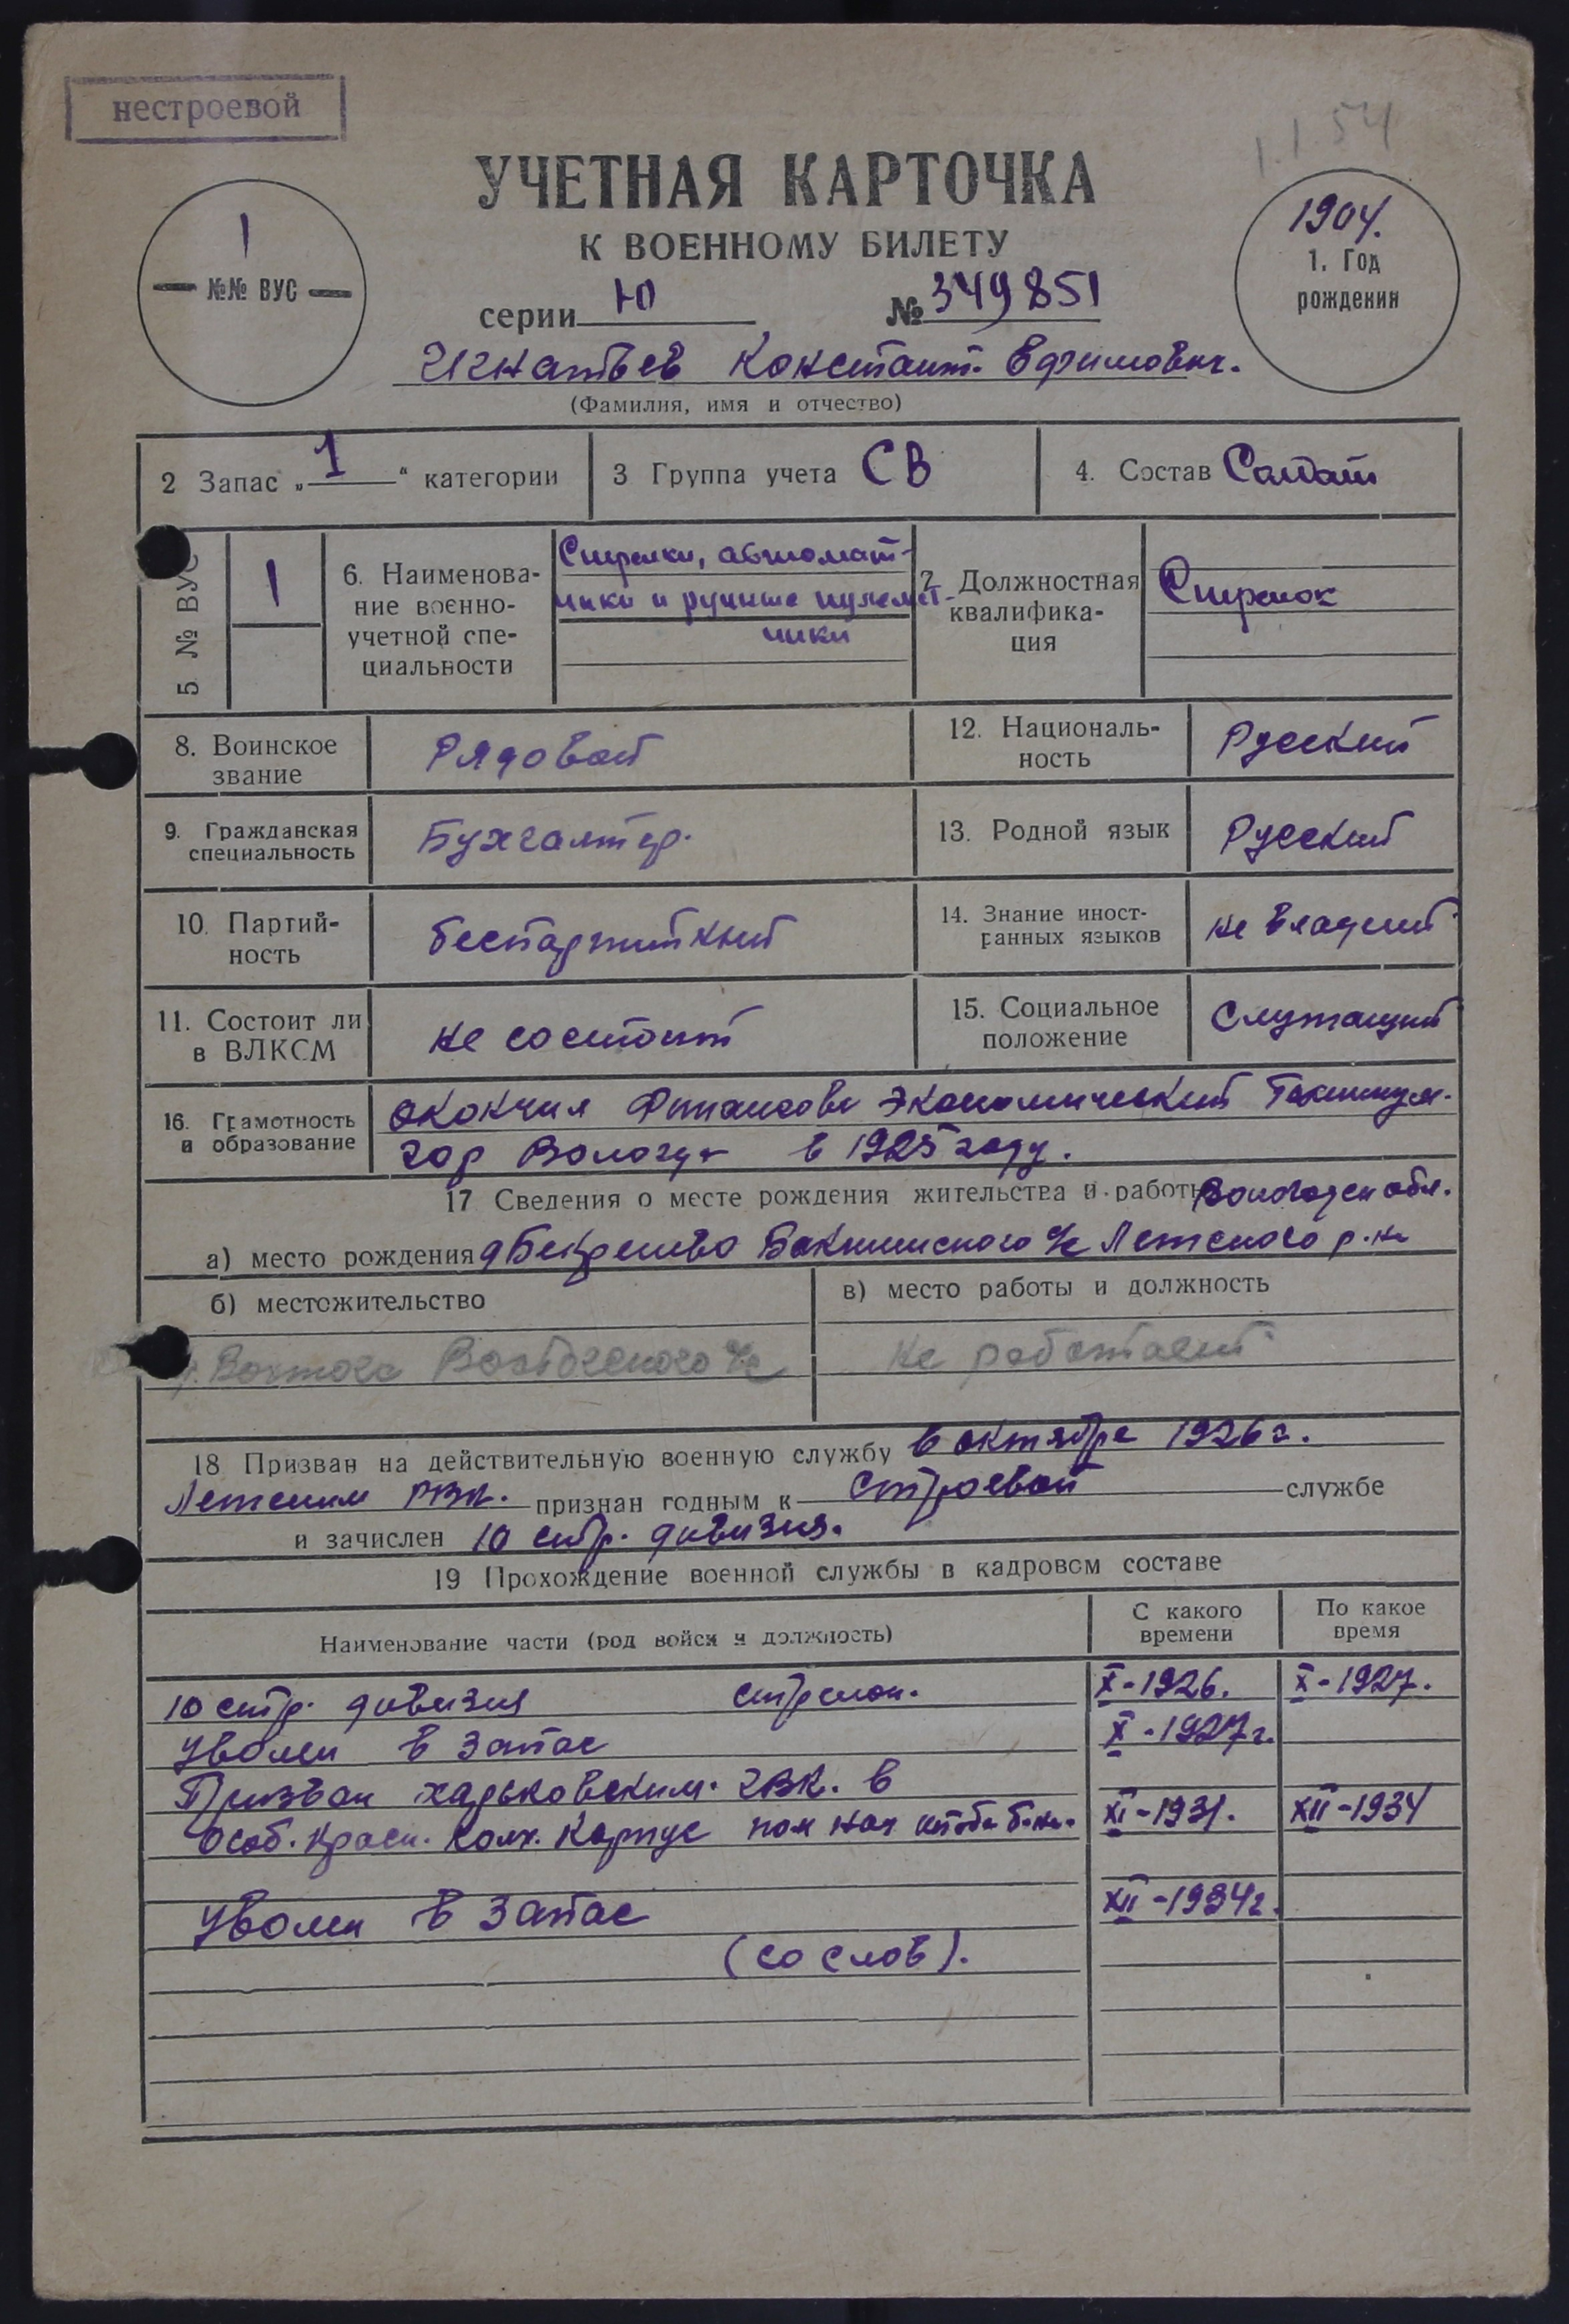 нестроевой
1.1.54
УЧЕТНАЯ КАРТОЧКА
К ВОЕННОМУ БИЛЕТУ
1
№№ ВУС
1904.
1. Год
рождения
серии Ю № 349851
Игнатьев Констант. Ефимович.
(Фамилия, имя и отчество)
2 Запас „1“ категории
3 Группа учета СВ
4. Состав Солдат
5 № ВУС 1
6. Наименова-
ние военно-
учетной спе-
циальности
Стрелки, автомат-
чики и ручные пулемет-
чики
7. Должностная
квалифика-
ция
Стрелок
8. Воинское
звание
Рядовой
12. Националь-
ность
Русский
9. Гражданская
специальность
Бухгалтер.
13. Родной язык
Русский
10. Партий-
ность
беспартийный
14. Знание иност-
ранных языков
не владеет
11. Состоит ли
в ВЛКСМ
не состоит
15. Социальное
положение
Служащий
16. Грамотность
и образование
окончил Финансово Экономический Техникум.
гор Вологда в 1925 году.
17 Сведения о месте рождения жительства и работы Вологодск обл.
а) место рождения д с/с р.на
б) местожительство
в) место работы и должность
Вохтога Вохтогского с/с
Не работает
18 Призван на действительную военную службу в октябре 1926 г.
РВК. признан годным к строевой службе
и зачислен 10 стр. дивизия.
19 Прохождение военной службы в кадровом составе
Наименование части (род войск и должность)
С какого
времени
По какое
время
10 стр. дивизия стрелок. X-1926. X-1927.
Уволен в запас X-1927г.
Призван харьковским. ГВК. в
Особ. Красн. Колх. Корпус пом нач штаба б-на. XI-1931. XII-1934
Уволен в запас XII-1934г.
(со слов).